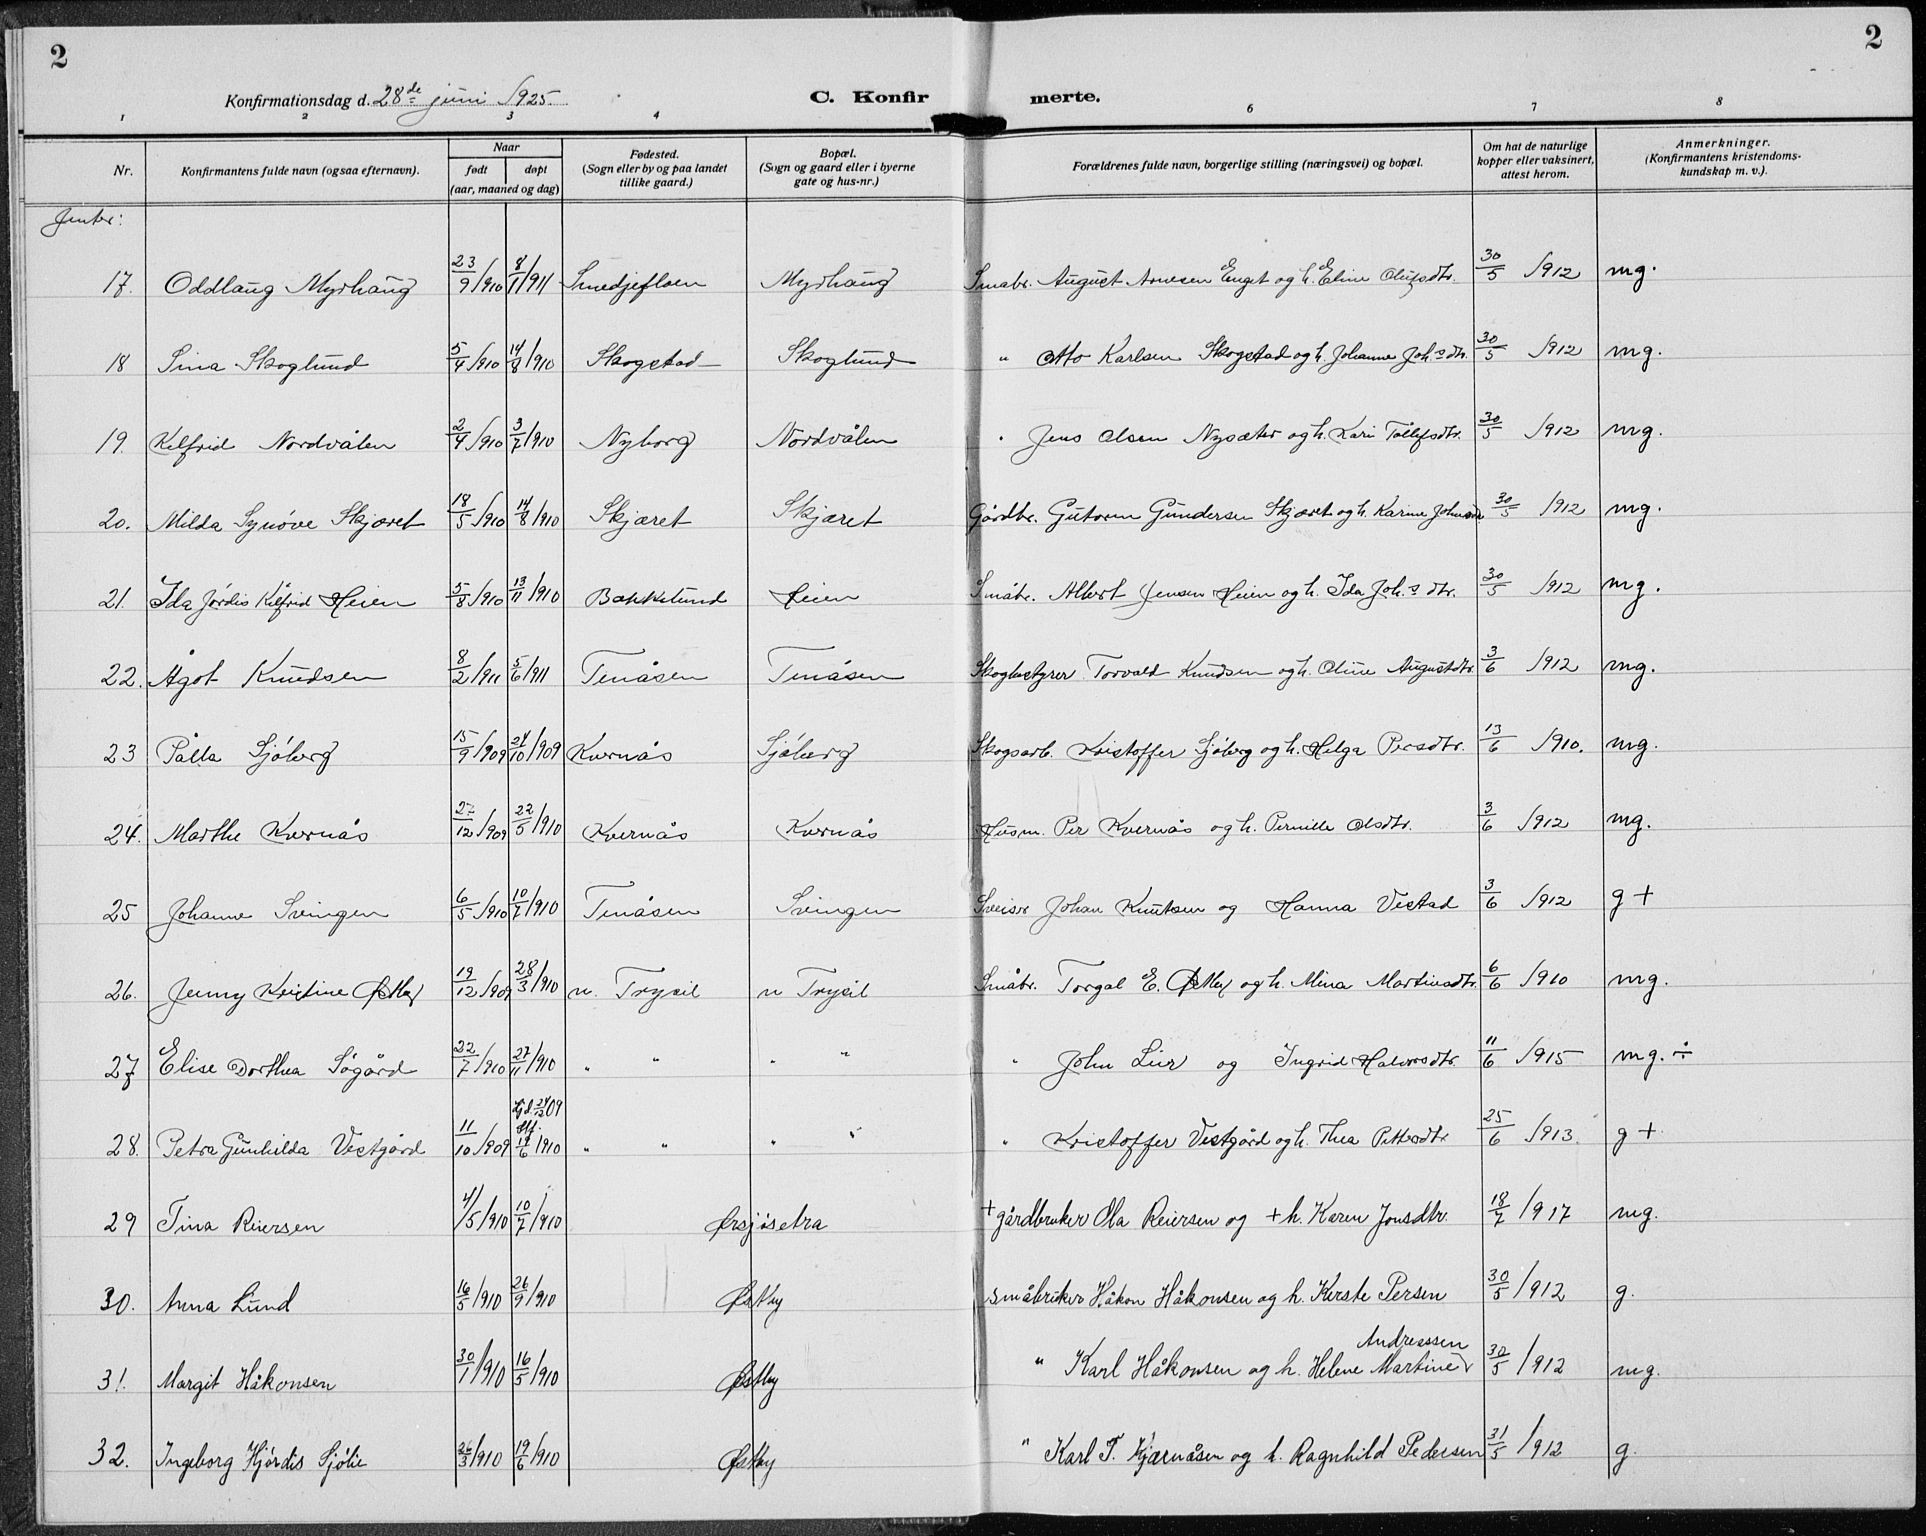 2 2
Konfirmationsdag d. 28de juni 1925. C. Konfir merte.
1 2 3 4 6 7 8
Nr. Konfirmantens fulde navn (ogsaa efternavn). Naar født døpt (aar, maaned og dag) Fødested. (Sogn eller by og paa landet tillike gaard.) Bopæl. (Sogn og gaard eller i byerne gate og hus-nr.) Forældrenes fulde navn, borgerlige stilling (næringsvei) og bopæl. Om hat de naturlige kopper eller vaksinert, attest herom. Anmerkninger. (Konfirmantens kristendoms-kundskap m. v.).
Jenter:
17. Oddlaug Myrhaug 23/9/910 8/1/911 Smedjefloen Myrhaug Småbr. August Arnesen Enget og h. Eline Olufsdtr. 30/5 1912 mg.
18 Sina Skoglund 5/4/910 14/8/910 Skogstad Skoglund " Otto Karlsen Skogstad og h. Johanne Joh.s dtr. 30/5 1912 mg.
19. Kelfrid Nordvålen 2/4/910 3/7/910 Nyborg Nordvålen " Jens Olsen Nysæter og h. Kari Tollefsdtr. 30/5 1912 mg.
20. Milda Synøve Skjæret 18/5/910 14/8/910 Skjæret Skjæret Gårdbr. Gutorm Gundersen Skjæret og h. Karine 30/5 1912 mg.
21. Ida Jørdis Kelfrid Heien 5/8/910 13/11/910 Bakkelund Heien Småbr. Albert Jensen Heien og h. Ida Joh.s dtr. 30/5 1912 mg.
22. Ågot Knudsen 8/2/911 5/6/911 Tenåsen Tenåsen Skogbestyrer Torvald Knudsen og h. Oline Augustdtr. 3/6 1912 mg.
23 Palla Sjøberg 15/9/909 24/10/909 Kvernås Sjøberg Skogsarb. Kristoffer Sjøberg og h. Helga Persdtr. 13/6 1910. mg.
24. Marthe Kvernås 2/12/909 22/5/910 Kvernås Kvernås Husm. Per Kvernås og h. Pernille Olsdtr. 3/6 1912 mg.
25 Johanne Svingen 6/5/910 10/7/910 Tenåsen Svingen Sveiser Johan Knutsen og Hanna Vestad 3/6 1912 g +
26. Jenny Kristine Østby 19/12/909 28/3/910 n. Trysil n Trysil Småbr. Torgal E. Østby og h. Mina Martinsdtr. 6/6 1910 mg.
27 Elise Dorthea Søgård 22/7/910 27/11/910 " " " " " John Lier og Ingrid Halvorsdtr. 11/6 1915 mg. ÷
28. Petra Gunhilda Vestgård 11/10/909 hjd. 24/12 09 stf. 19/6/910 " " " " " Kristoffer Vestgård og h. Thea Pettersdtr 25/6 1913. g +
29 Tina Reiersen 4/5/910 10/7/910 Ørsjøsetra + gårdbruker Ola Reiersen og + h. Karen Jonsdtr. 18/7/917 mg.
30. Anna Lund 16/5/910 26/9/910 Østby småbruker Håkon Håkonsen og h. Kerste Persen 30/5/912 g.
Andreassen
31. Margit Håkonsen 30/1/910 16/5/910 Østby " Karl Håkonsen og h. Helene Martine 30/5/912 mg.
32. Ingeborg Hjørdis Sjølie 26/3/910 19/6/910 Østby " Karl T. Kjærnåsen og h. Ragnhild Pedersen 31/5/912 g.